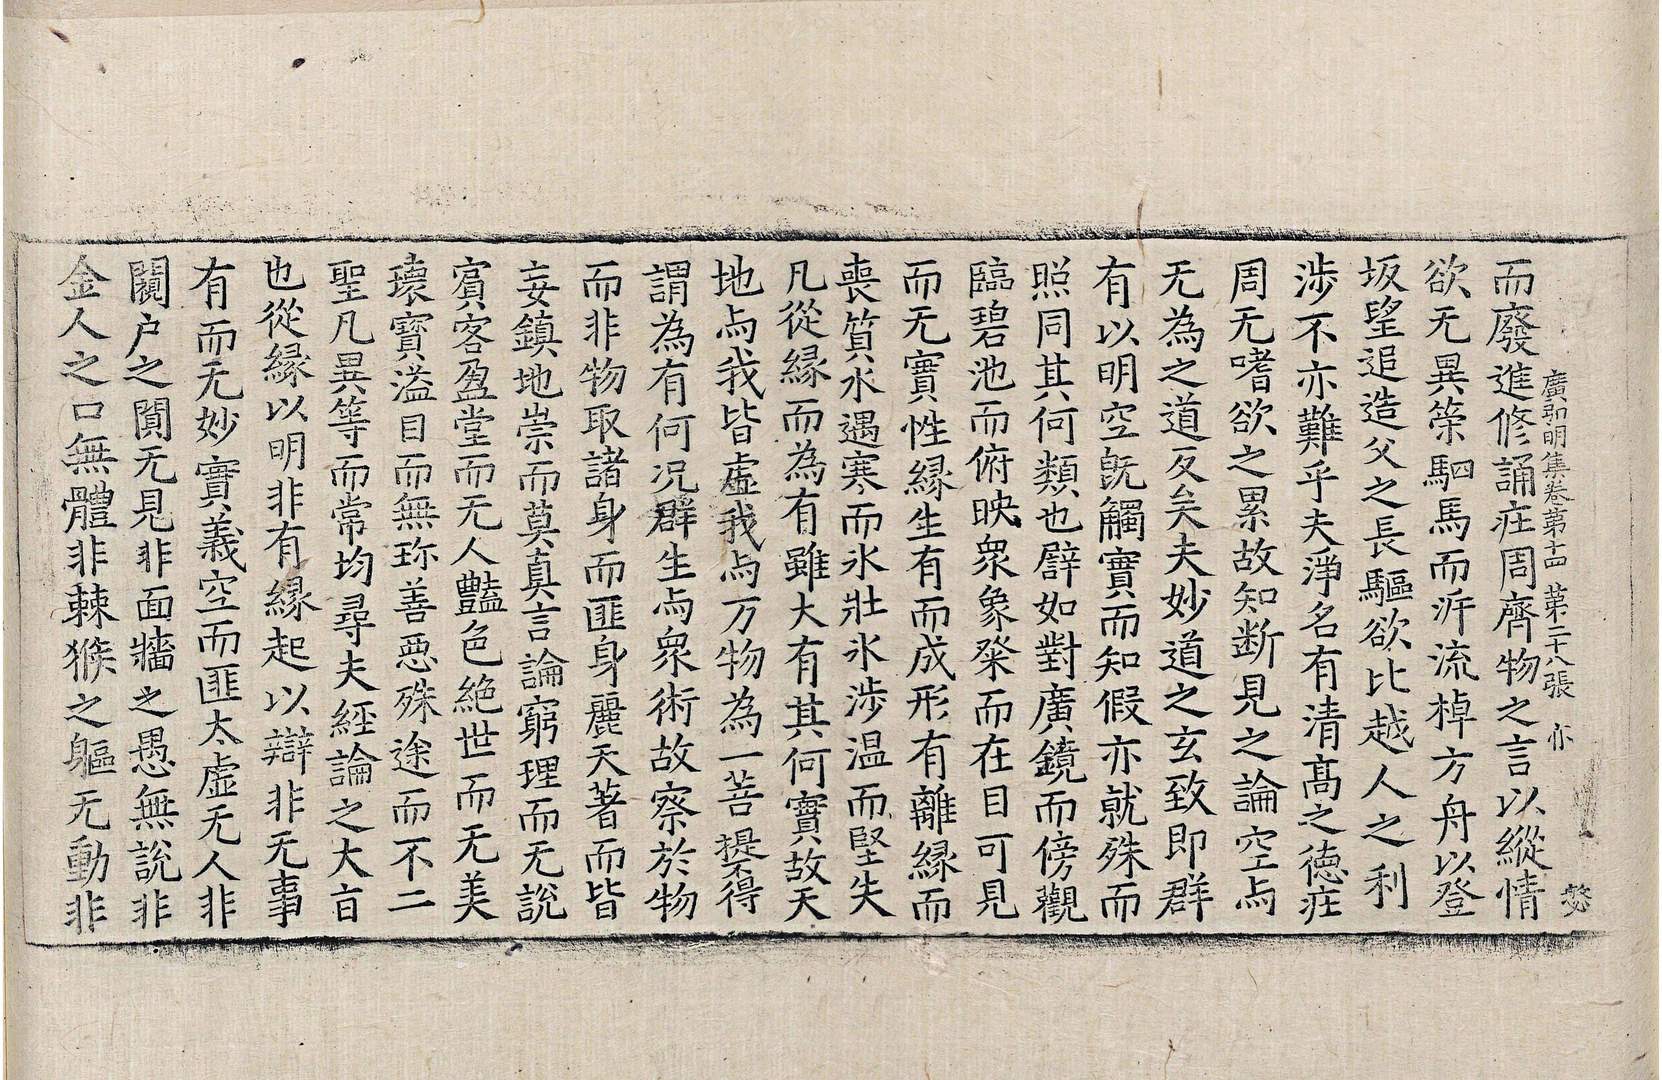 廣弘明集卷第十四　第二十八張　亦
而廢進修誦㽵周齊物之言以縱情
欲无異策駟馬而泝流棹方舟以登
坂望追造父之長驅欲比越人之利
涉不亦難乎夫淨名有清髙之德㽵
周无嗜欲之累故知断見之論空与
无為之道反矣夫妙道之玄致即群
有以明空旣觸實而知假亦就殊而
照同其何類也譬如對廣鏡而傍觀
臨碧池而俯映衆象粲而在目可見
而无實性縁生有而成形有離縁而
喪質水遇寒而氷壯氷涉温而堅失
凡從縁而為有雖大有其何實故天
地与我皆虛我与万物為一菩提不得
謂為有何况群生与衆術故察於物
而非物取諸身而匪身麗天著而皆
妄鎮地崇而莫真言論窮理而无說
賓客盈堂而无人豔色絶世而无美
瓌寶溢目而無珎善惡殊途而不二
聖凡異等而常均尋夫經論之大㫖
也從縁以明非有縁起以辯非无事
有而无妙實義空而匪太虛无人非
闚户之闃无見非面牆之愚無說非
金人之口無體非棘猴之軀无動非